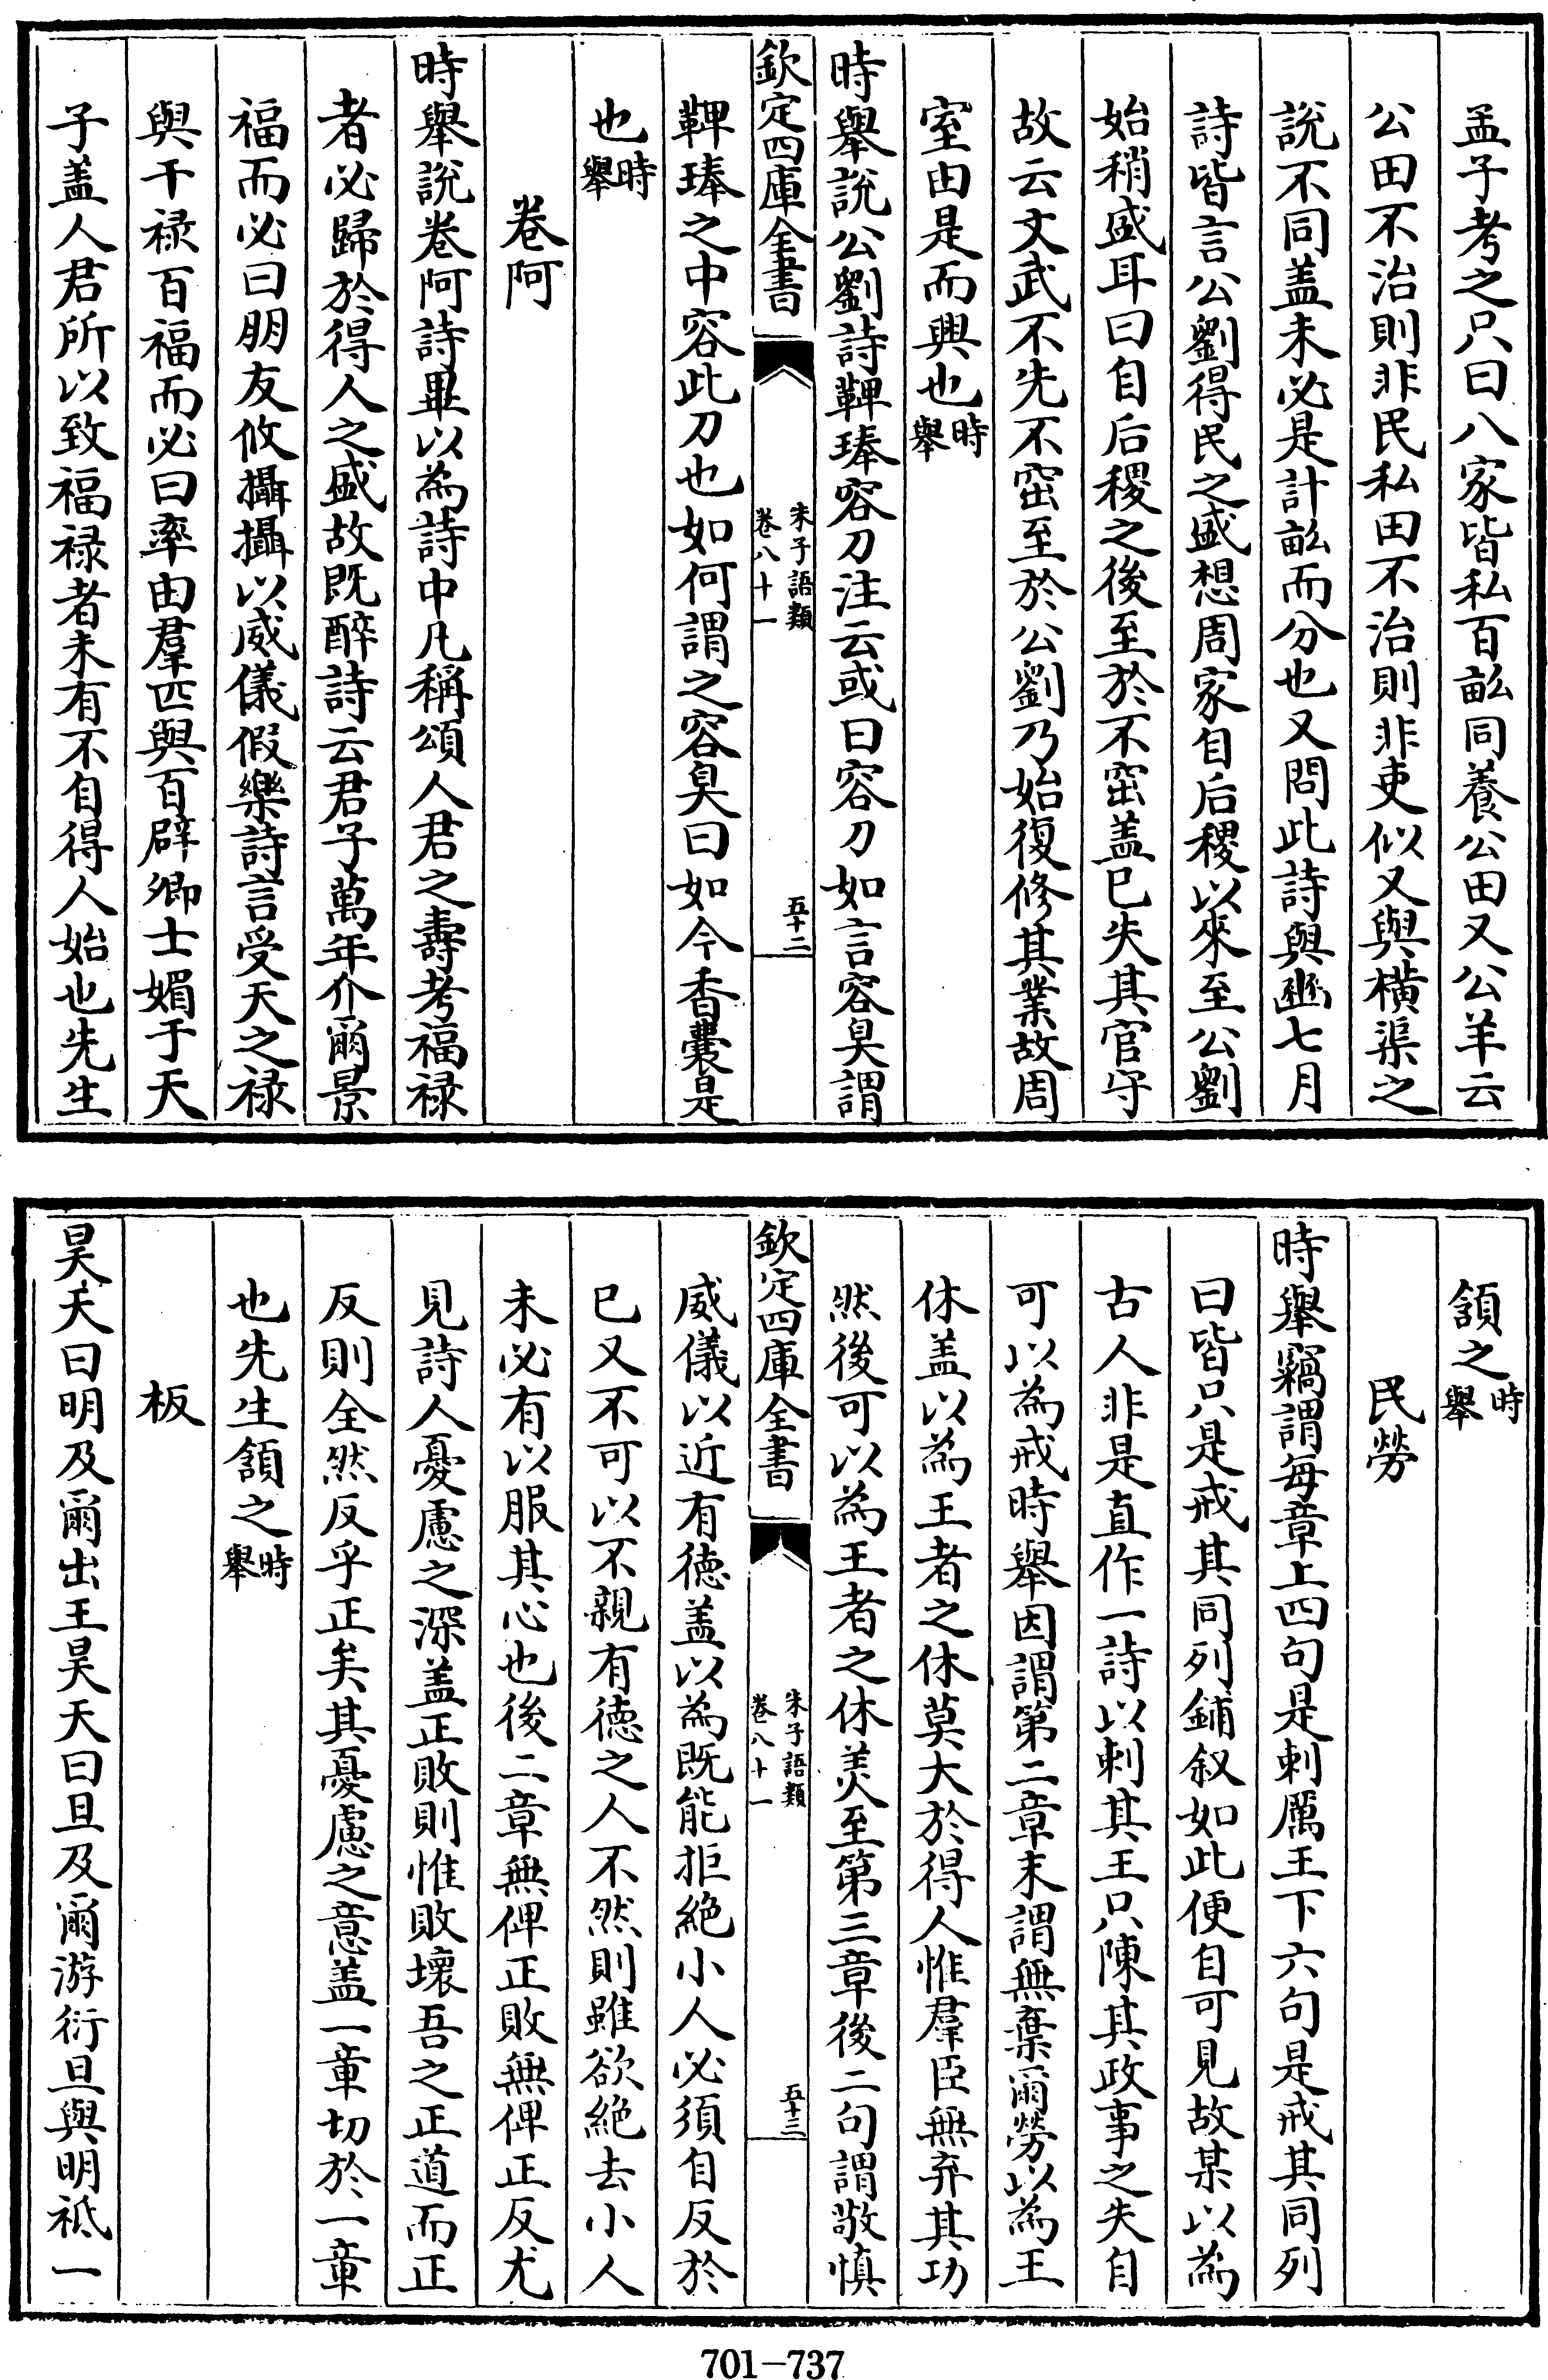 孟子考之只曰八家皆私百畝同養公田又公羊云
公田不治則非民私田不治則非吏似又與橫渠之
說不同盖未必是計畝而分也又問此詩與豳七月
詩皆言公劉得民之盛想周家自后稷以來至公劉
始稍盛耳曰自后稷之後至於不窋盖已失其官守
故云文武不先不窋至於公劉乃始復修其業故周
室由是而興也時舉
時舉說公劉詩鞸琫容刀注云或曰容刀如言容臭謂
欽定四庫全書
朱子語類
卷八十一
五十二
鞸琫之中容此刀也如何謂之容臭曰如今香囊是
也時舉
卷阿
時舉說卷阿詩畢以為詩中凡稱頌人君之壽考福禄
者必歸於得人之盛故既醉詩云君子萬年介爾景
福而必曰朋友攸攝攝以威儀假樂詩言受天之禄
與干禄百福而必曰率由羣匹與百辟卿士媚于天
子盖人君所以致福禄者未有不自得人始也先生
頷之時舉
民勞
時舉竊謂每章上四句是刺厲王下六句是戒其同列
曰皆只是戒其同列鋪叙如此便自可見故某以為
古人非是直作一詩以刺其王只陳其政事之失自
可以為戒時舉因謂第二章末謂無棄爾勞以為王
休盖以為王者之休莫大於得人惟羣臣無弃其功
然後可以為王者之休美至第三章後二句謂敬慎
欽定四庫全書
朱子語類
卷八十一
五十三
威儀以近有德盖以為既能拒絶小人必須自反於
已又不可以不親有德之人不然則雖欲絶去小人
未必有以服其心也後二章無俾正敗無俾正反尤
見詩人憂慮之深盖正敗則惟敗壞吾之正道而正
反則全然反乎正矣其憂慮之意盖一章切於一章
也先生頷之時舉
板
昊天曰明及爾出王昊天曰旦及爾游衍旦與明祗一
701-737